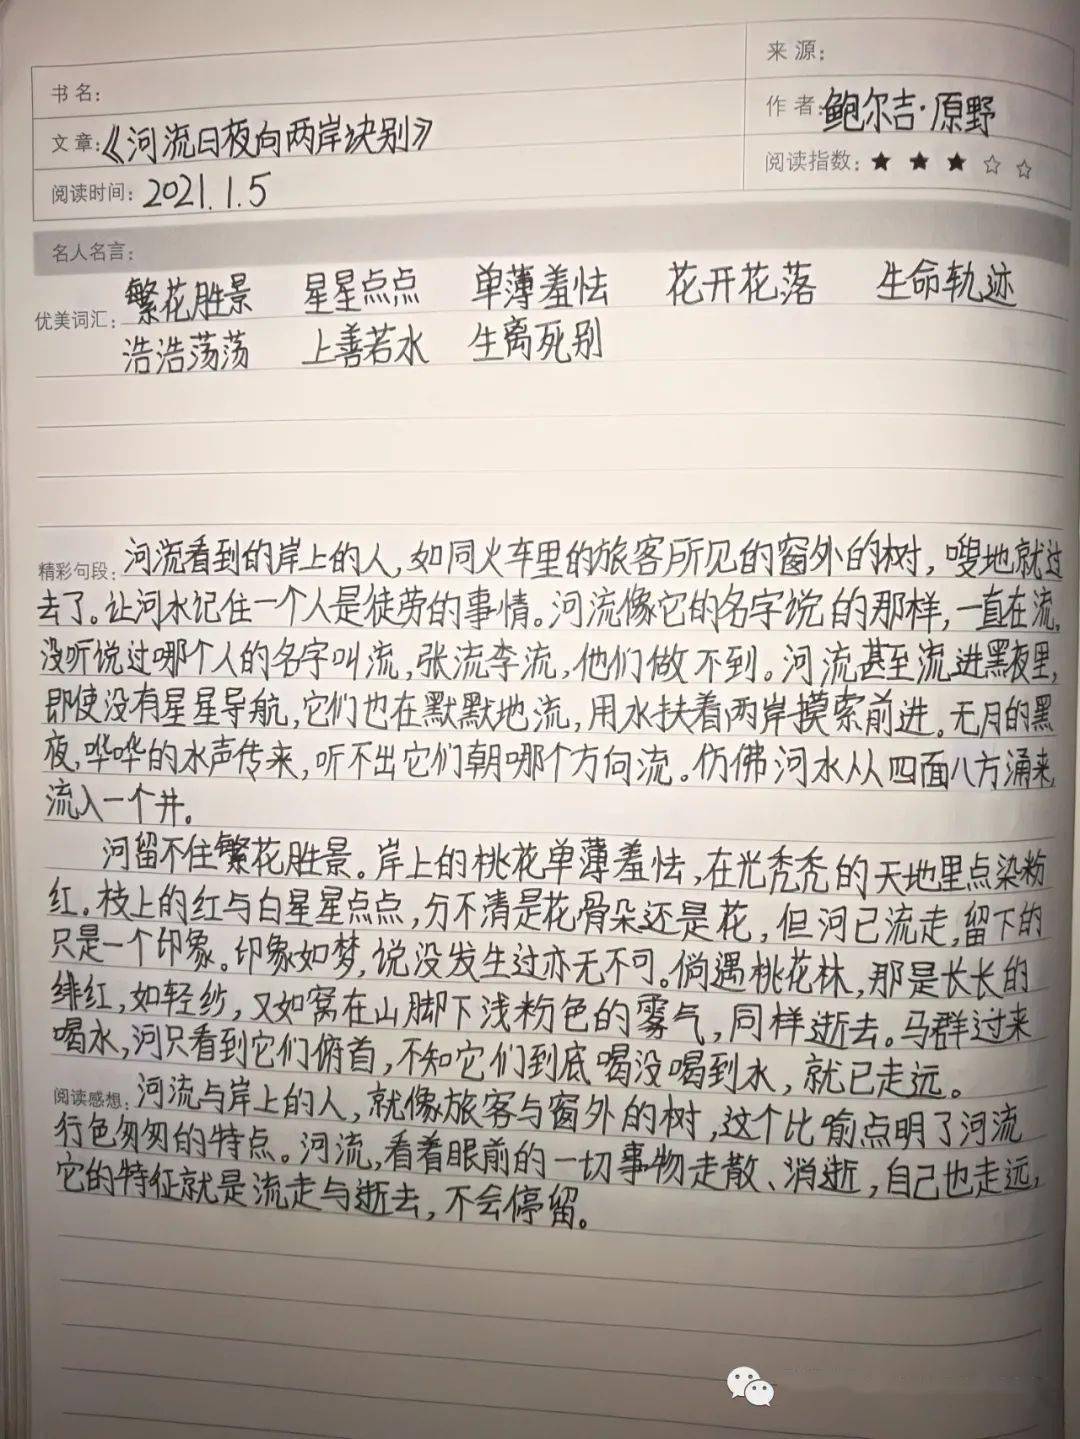 书名：
来源：
文章：《河流日夜向两岸诀别》
作者：鲍尔吉·原野
阅读时间：2021.1.5
阅读指数：★★★☆☆
名人名言：
优美词汇：繁花胜景 星星点点 单薄羞怯 花开花落 生命轨迹
浩浩荡荡 上善若水 生离死别
精彩句段：河流看到的岸上的人，如同火车里的旅客所见的窗外的树，嗖地就过
去了。让河水记住一个人是徒劳的事情。河流像它的名字说的那样，一直在流，
没听说过哪个人的名字叫流，张流李流，他们做不到。河流甚至流进黑夜里，
即使没有星星导航，它们也在默默地流，用水扶着两岸摸索前进。无月的黑
夜，哗哗的水声传来，听不出它们朝哪个方向流。仿佛河水从四面八方涌来，
流入一个井。
河留不住繁花胜景。岸上的桃花单薄羞怯，在光秃秃的天地里点染粉
红。枝上的红与白星星点点，分不清是花骨朵还是花，但河已流走，留下的
只是一个印象。印象如梦，说没发生过亦无不可。倘遇桃花林，那是长长的
绯红，如轻纱，又如窝在山脚下浅粉色的雾气，同样逝去。马群过来
喝水，河只看到它们俯首，不知它们到底喝没喝到水，就已走远。
阅读感想：河流与岸上的人，就像旅客与窗外的树，这个比喻点明了河流
行色匆匆的特点。河流，看着眼前的一切事物走散、消逝，自己也走远，
它的特征就是流走与逝去，不会停留。